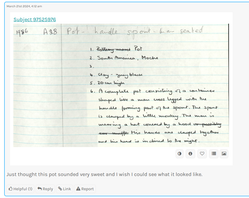 Subject 97525976
1986 A88 Pot - handle spout - man seated
1. Pot
2. Santa America, Moche
3.
4. Clay: grey brown
5. 20 cm high
6. A complete pot consisting of a container
shaped like a man cross legged with the
handle forming part of the spout. The spot
is clasped by a little monkey. The man is
wearing a hat covered by a head
his hands are clasped together
and his head is inclined to the right.
Just thought this pot sounded very sweet and i wish i could see what it looked like.
Helpful (1) Reply Link Report